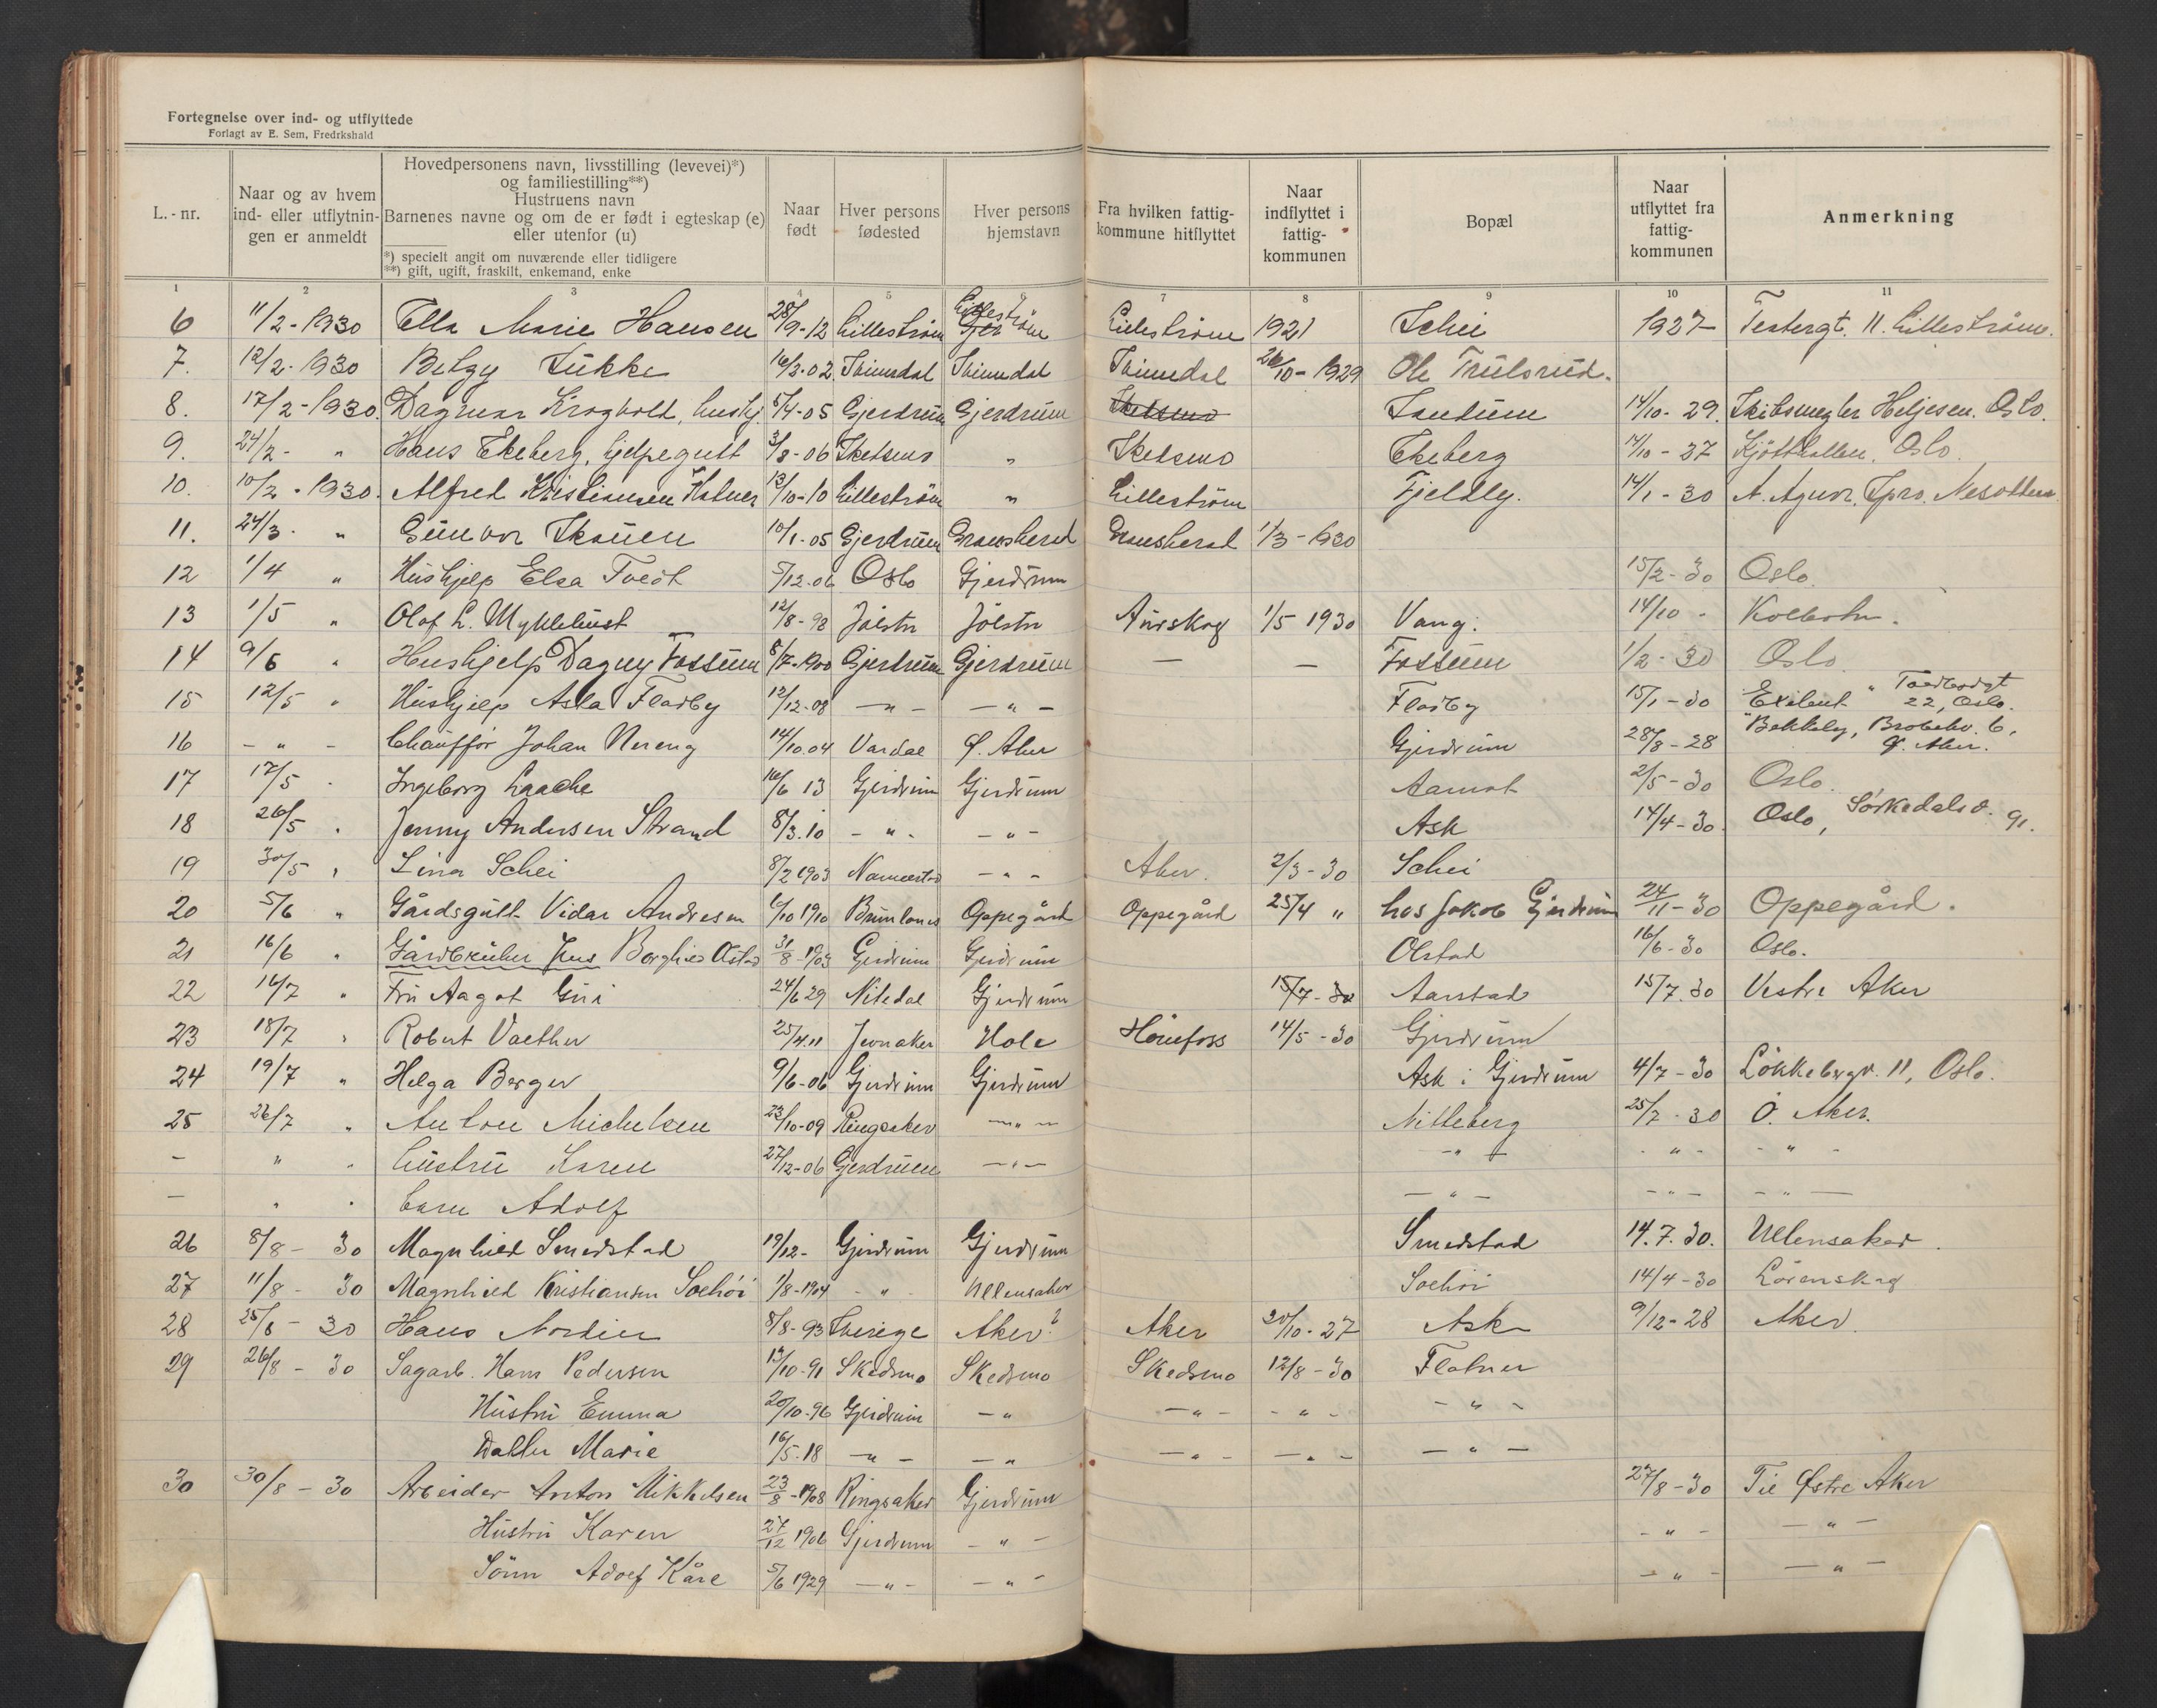 Fortegnelse over ind- og utflyttede
Forlagt av E. Sem, Fredrkshald
L.-nr. | Naar og av hvem ind- eller utflytningen er anmeldt | Hovedpersonens navn, livsstilling (levevei)*) og familiestilling**) Hustruens navn Barnenes navne og om de er født i egteskap (e) eller utenfor (u) *) specielt angit om nuværende eller tidligere **) gift, ugift, fraskilt, enkemand, enke | Naar født | Hver persons fødested | Hver persons hjemstavn | Fra hvilken fattigkommune hitflyttet | Naar indflyttet i fattigkommunen | Bopæl | Naar utflyttet fra fattigkommunen | Anmerkning
1 2 3 4 5 6 7 8 9 10 11
6 11/2-1930 Ella Marie Hansen 28/9-12 Lilleström Lilleström Lilleström 1921 Schei 1927- 11. Lilleström.
7. 12/2-1930 16/2-02 26/10-1929 Ole Trulsrud.
8. 17/2-1930. Dagmar Krogholt, hushj. 5/4-05 Gjerdrum Gjerdrum Skedsmo 14/10-29. Skibsmegler Heljesen. Oslo.
9. 24/2- " Hans Ekeberg, hjelpegutt 3/8-06 Skedsmo " Skedsmo Ekeberg 14/10-27 Kjötthallen. Oslo.
10. 10/2-1930. Alfred Kristiansen 13/10-10 Lilleström " Lilleström Fjeldly. 14/1-30 Nesodden
11. 24/3- " Gunvor Skouen 10/1-05 Gjerdrum Gransherad Gransherad 1/3-1930
12 1/4 " Hushjelp Elsa Tvedt 5/12-06 Oslo Gjerdrum 15/2-30 Oslo.
13 1/5 " Olof L. Myklebust 12/8-98 Jölster Jölster Aurskog 1/5 1930 Vang. 14/10 - Kolbotn.
14 9/5 " Hushjelp Dagny Fossum 8/7-1900 Gjerdrum Gjerdrum — — Fossum 1/2-30 Oslo
15 12/5 " Hushjelp Asla Flatby 12/12-08 — " — — " — Flatby 15/1-30 " Toldbodgt 22, Oslo.
16 — " — Chauffør Johan Nereng 14/10.04 Vardal Ø. Aker Gjerdrum 28/8-28 Bekkely, Brobekv. 6, Ø. Aker.
17 17/5 - Ingeborg Laache 16/6 13 Gjerdrum Gjerdrum Aamot 2/5-30 Oslo.
18 26/5 " Jenny Andersen Strand 8/3.10 — " — — " — Ask 14/4-30. Oslo, Sörkedalsv. 91.
19 30/5 " Lina Schei 8/2 1903 — " — Aker. 2/3-30 Schei
20 5/6 " Gårdsgutt Vidar Andresen 6/10 1910 Brunlanes Oppegård Oppegård 25/4 " hos Jakob Gjerdrum 24/11-30 Oppegård.
21 16/6 " Gårdbruker frue Borghild Olstad 31/8-1903 Gjerdrum Gjerdrum Olstad 16/6-30 Oslo.
22 16/7 " Fru Aagot Gui 24/6 29 Nitedal Gjerdrum 15/7-30 Aarstad 15/7.30 Vestre Aker
23 18/7 " Robert Vaether 25/4.11 Jevnaker Hole Hönefoss 14/5-30 Gjerdrum
24 19/7 " Helga Berger 9/6-06 Gjerdrum Gjerdrum Ask i Gjerdrum 4/7-30 Lökkebergv. 11, Oslo.
25 26/7 " Anton Michelsen 23/10-09 Ringsaker — " — Nitteberg 25/7-30 Ö. Aker.
- " - hustru Karen 27/12-06 Gjerdrum — " — — " — - " - - " -
- " - barn Adolf — " — — " — — " —
26 8/8-30 Magnhild Smedstad 19/12- Gjerdrum Gjerdrum Smedstad 14.7.30. Ullensaker.
27 11/8-30 Magnhild Kristiansen Soehöi 1/8-1904 - " - Ullensaker Soehöi 14/4-30 Lörenskog
28 25/8-30 Hans Nordin 8/8-93 Sverige Aker? Aker 20/10-27 Ask 9/12-28 Aker.
29 26/8-30 Sagarb. Hans Pedersen 13/10-91 Skedsmo Skedsmo Skedsmo 12/8-30 Flatner
Hustru Emma 20/10-96 Gjerdrum — " — " — — " — — " —
Datter Marie 16/5.18 — " — — " — " — — " — — " —
30 30/8-30 Arbeider Anton Mikkelsen 23/8-1908 Ringsaker Gjerdrum 27/8-30 Til Østre Aker
Hustru Karen 27/12 1906 Gjerdrum — " — — " — — " —
Sönn Adolf Kåre 5/6 1929 — " — — " — — " — — " —